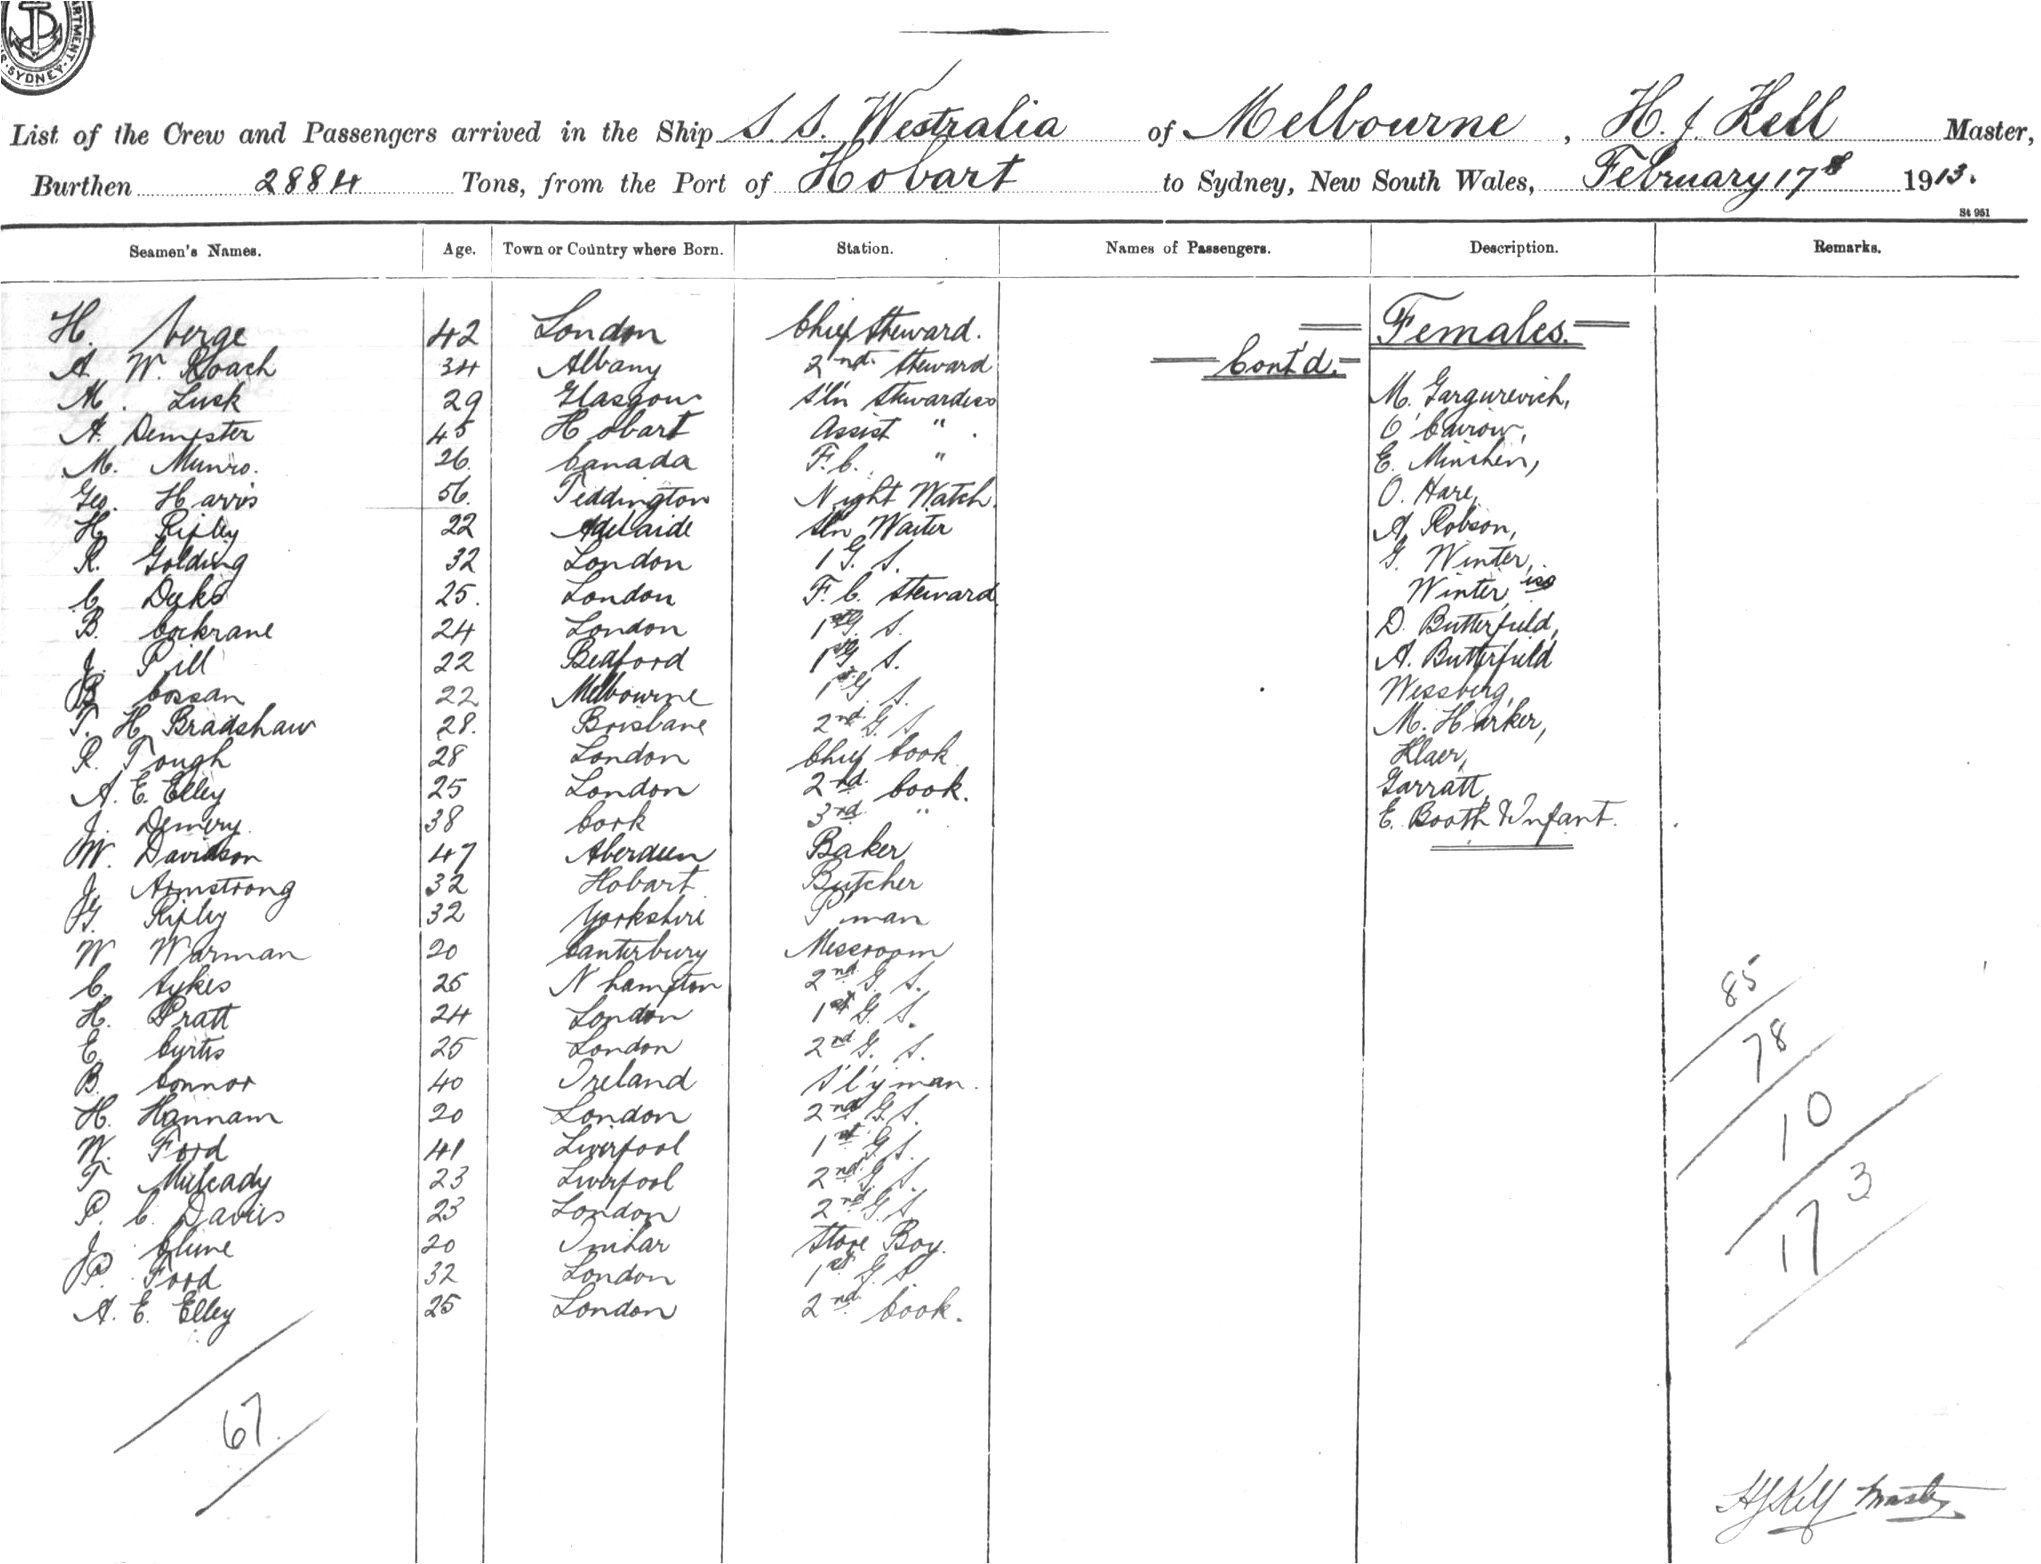 ARTMENT
SYDNEY
List of the Crew and Passengers arrived in the Ship S. S. Westralia of Melbourne, H. J. Kell Master,
Burthen 2884 Tons, from the Port of Hobart to Sydney, New South Wales, February 17 1913.
St 951
Seamen's Names. Age. Town or Country where Born. Station. Names of Passengers. Description. Remarks.
H. 42 London Chief Steward. Females.
A. W. Roach 34 Albany 2nd Steward Cont'd.
M. Lusk 29 Glasgow S'l'n Stewardess M. Gargurevich,
A. Dempster 45 Hobart Assist " C. Cairow,
M. Munro. 26. Canada F. C. " E. Minchen,
Geo. Harris 56. Teddington Night Watch. O. Hare,
H. Ripley 22 Adelaide Sln Waiter A. Robson,
R. Golding 32 London 1 G. S. G. Winter,
C. Duks 25. London F. C. Steward Winter,
B. Cockrane 24 London 1st G. S. D. Butterfield,
J. Pill 22 Bedford 1st G S. A. Butterfield
B. Cossan 22 Melbourne 1st G S. Wessberg,
T. H. Bradshaw 28. Brisbane 2nd G. S. M. Harker,
R. Tough 28 London Chief Cook Klaer,
A. E. Elley 25 London 2nd Cook. Garratt,
J. Demery. 38 Cork 3rd " E. Booth & Infant.
W. Davidson 47 Aberdeen Baker
J. Armstrong 32 Hobart Butcher
G. Ripley 32 Yorkshire P man
W Warman 20 Canterbury Messroom
C. Sykes 25 N hampton 2nd G. S.
H. Pratt 24 London 1st G. S.
E. Curtis 25 London 2nd G. S.
B. Connor 40 Ireland S'l'y man.
H. Hannam 20 London 2nd G. S.
W. Ford 41 Liverpool 1st G S.
T Mulcady 23 Liverpool 2nd G S.
P. C. Davies 23 London 2nd G. S.
J. Clune 20 Store Boy.
P. Food 32 London 1st G. S.
A. E. Elley 25 London 2nd Cook.
85
78
10
173
67.
H J Kell Master